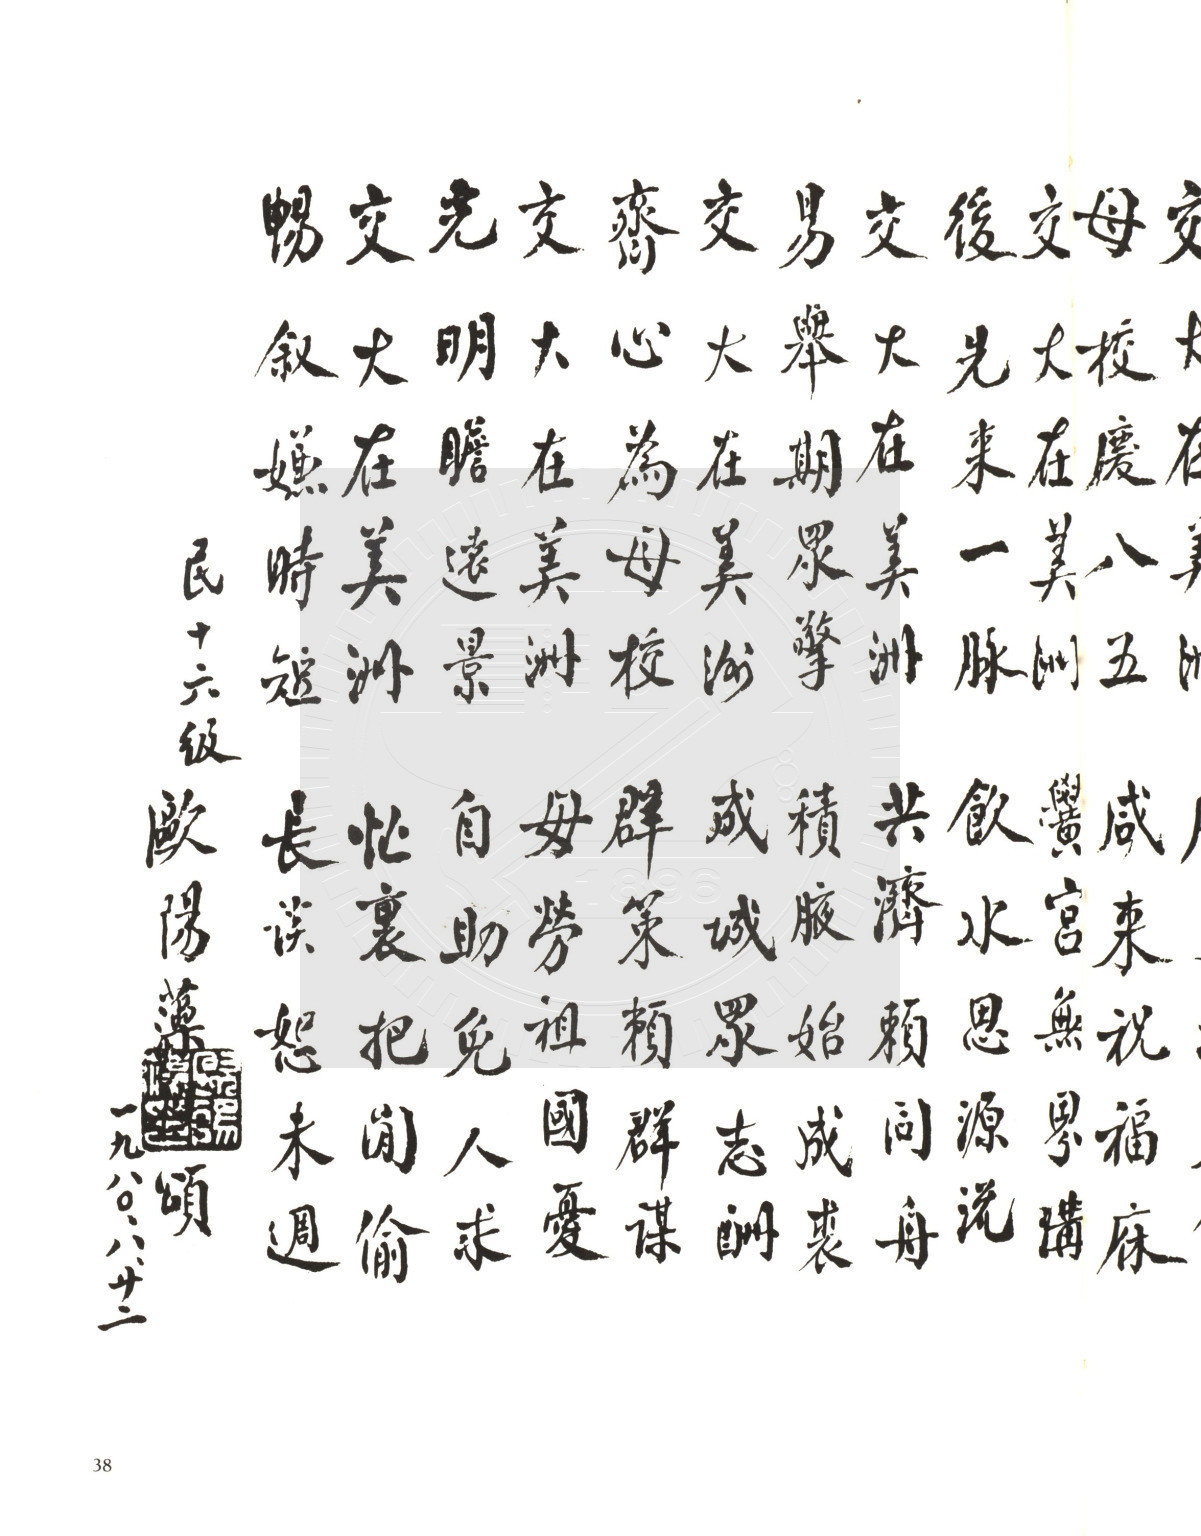 交大在美
母校慶八五 咸來祝福庥
交大在美洲 黌宮無界溝
後先來一脉 飲水思源流
交大在美洲 共濟賴同舟
易舉期眾擎 積腋始成裘
交大在美洲 成城眾志酬
齊心為母校 群策賴群謀
交大在美洲 毋勞祖國憂
光明瞻遠景 自助免人求
交大在美洲 忙裏把閒偷
暢叙嫌時短 長談恕未週
民十六級 歐陽藻 頌
一九八〇、八、廿二
38
1896